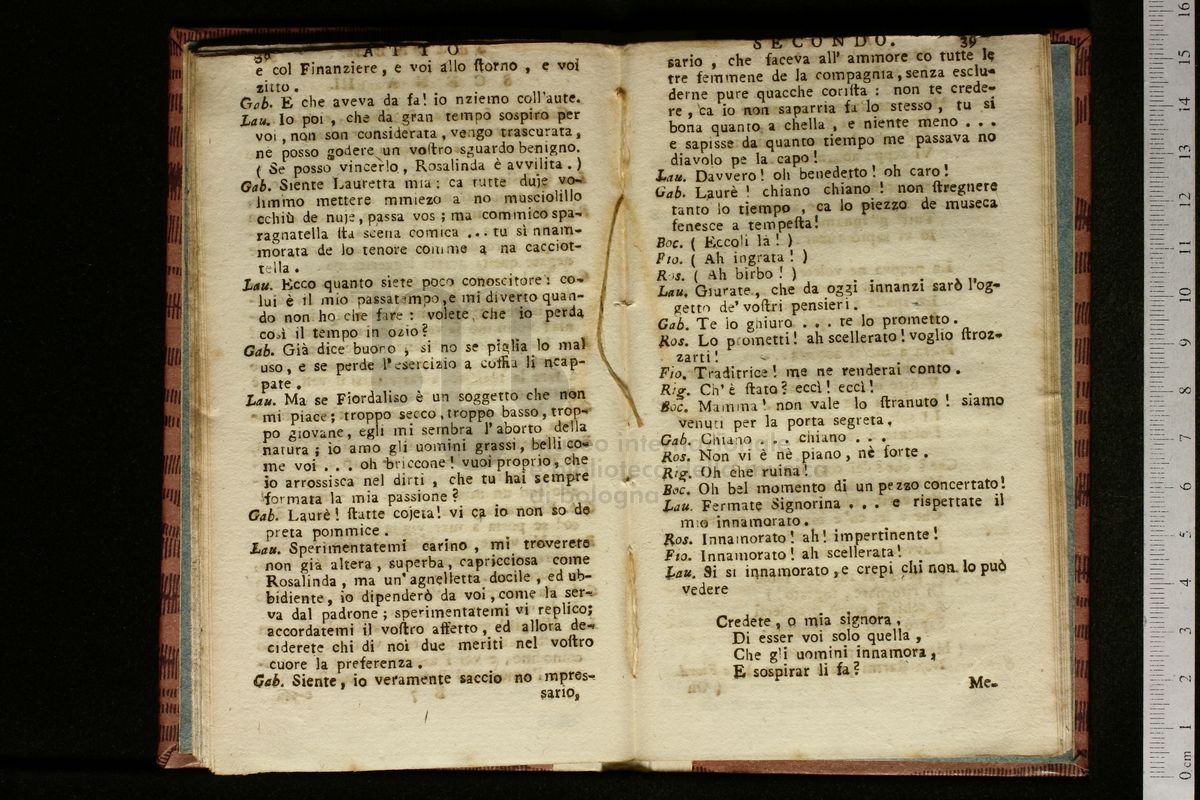 38 ATTO
e col Finanziere, e voi allo ſtorno, e voi
zitto.
Gab. E che aveva da fa! io nziemo coll'aute.
Lau. Io poi, che da gran tempo sospiro per
voi, non son considerata, vengo trascurata,
nè posso godere un voſtro sguardo benigno.
( Se posso vincerlo, Rosalinda è avvilita. )
Gab. Siente Lauretta mia: ca tutte duje vo-
limmo mettere mmiezo a no musciolillo
cchiù de nuje, passa vos; ma commico spa-
ragnatella ſta scena comica ... tu sì nnam-
morata de lo tenore comme a na cacciot-
tella.
Lau. Ecco quanto siete poco conoscitore: co-
lui è il mio passatempo, e mi diverto quan-
do non ho che fare: volete, che io perda
così il tempo in ozio?
Gab. Già dice buono, si no se piglia lo mal
uso, e se perde l'esercizio a coffia li ncap-
pate.
Lau. Ma se Fiordaliso è un soggetto che non
mi piace; troppo secco, troppo basso, trop-
po giovane, egli mi sembra l'aborto della
natura; io amo gli uomini grassi, belli co-
me voi ... oh briccone! vuoi proprio, che
io arrossisca nel dirti, che tu hai sempre
formata la mia passione?
Gab. Laurè! ſtatte cojeta! vi ca io non so de
preta pommice.
Lau. Sperimentatemi carino, mi troverete
non già altera, superba, capricciosa come
Rosalinda, ma un'agnelletta docile, ed ub-
bidiente, io dipenderò da voi, come la ser-
va dal padrone; sperimentatemi vi replico;
accordatemi il voſtro affetto, ed allora de-
ciderete chi di noi due meriti nel voſtro
cuore la preferenza.
Gab. Siente, io veramente saccio no mpres-
sario,
SECONDO. 39
sario, che faceva all'ammore co tutte le
tre femmene de la compagnia, senza esclu-
derne pure quacche coriſta: non te crede-
re, ca io non saparria fa lo stesso, tu si
bona quanto a chella, e niente meno ...
e sapisse da quanto tiempo me passava no
diavolo pe la capo!
Lau. Davvero! oh benedetto! oh caro!
Gab. Laurè! chiano chiano! non ſtregnere
tanto lo tiempo, ca lo piezzo de museca
fenesce a tempeſta!
Boc. ( Eccoli là! )
Fio. ( Ah ingrata! )
Ros. ( Ah birbo! )
Lau. Giurate, che da oggi innanzi sarò l'og-
getto de' voſtri pensieri.
Gab. Te lo ghiuro ... te lo prometto.
Ros. Lo prometti! ah scellerato! voglio ſtroz-
zarti!
Fio. Traditrice! me ne renderai conto.
Rig. Ch'è ſtato? eccì! eccì!
Boc. Mamma! non vale lo ſtranuto! siamo
venuti per la porta segreta.
Gab. Chiano ... chiano ...
Ros. Non vi è nè piano, nè forte.
Rig. Oh che ruina!
Boc. Oh bel momento di un pezzo concertato!
Lau. Fermate Signorina ... e rispettate il
mio innamorato.
Ros. Innamorato! ah! impertinente!
Fio. Innamorato! ah scellerata!
Lau. Si si innamorato, e crepi chi non lo può
vedere
Credete, o mia signora,
Di esser voi solo quella,
Che gli uomini innamora,
E sospirar li fa?
Me-
internazionale
biblioteca della musica
di bologna
0 cm 1 2 3 4 5 6 7 8 9 10 11 12 13 14 15 16